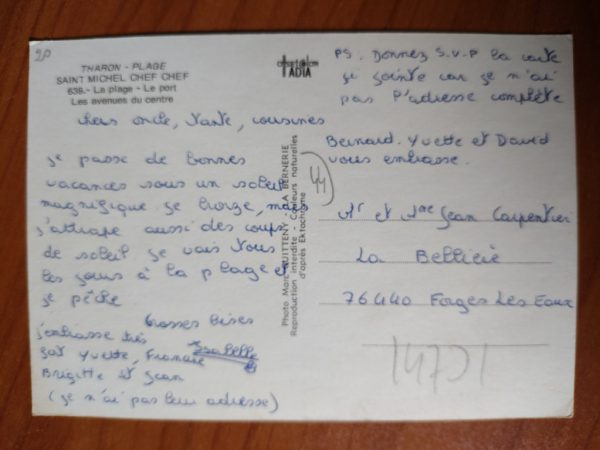 20
THARON - PLAGE
SAINT MICHEL CHEF CHEF
639.- La plage - Le port
Les avenues du centre
ARTAUD
PS. Donnez S.V.P la carte
si jointe car je n'ai
pas l'adresse complète
chers oncle, tante, cousines
Bernard. Yvette et David
vous embrasse.
je passe de bonnes
vacances sous un soleil
magnifique je bronze, mais
j'attrape aussi des coups
de soleil je vais tous
les jours à la plage et
je pêche
Grosses bises
Isabelle
j'embrasse très
fort Yvette, Francine
Brigitte et Jean
(je n'ai pas leur adresse)
Photo Marc GUITTENY - LA BERNERIE
Reproduction interdite - Couleurs naturelles
d'après Ektachrome
44
Mr et Mme Jean Carpentier
La Bellicie
76440 Forges Les Eaux